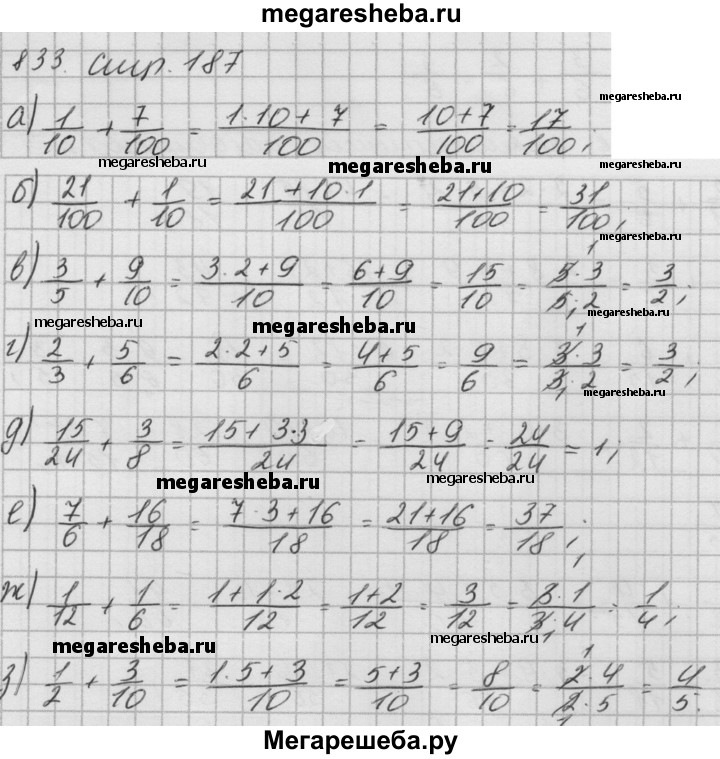 megaresheba.ru
833. стр. 187
megaresheba.ru
а) 1/10 + 7/100 = (1·10 + 7)/100 = (10+7)/100 = 17/100;
megaresheba.ru megaresheba.ru megaresheba.ru
б) 21/100 + 1/10 = (21 + 10·1)/100 = (21+10)/100 = 31/100;
в) 3/5 + 9/10 = (3·2+9)/10 = (6+9)/10 = 15/10 = (5·3)/(5·2) = 3/2;
megaresheba.ru megaresheba.ru megaresheba.ru
г) 2/3 + 5/6 = (2·2+5)/6 = (4+5)/6 = 9/6 = (3·3)/(3·2) = 3/2;
megaresheba.ru
д) 15/24 + 3/8 = (15+3·3)/24 = (15+9)/24 = 24/24 = 1;
megaresheba.ru megaresheba.ru
е) 7/6 + 16/18 = (7·3+16)/18 = (21+16)/18 = 37/18;
ж) 1/12 + 1/6 = (1+1·2)/12 = (1+2)/12 = 3/12 = (3·1)/(3·4) = 1/4;
megaresheba.ru megaresheba.ru
з) 1/2 + 3/10 = (1·5+3)/10 = (5+3)/10 = 8/10 = (2·4)/(2·5) = 4/5.
Мегарешеба.ру